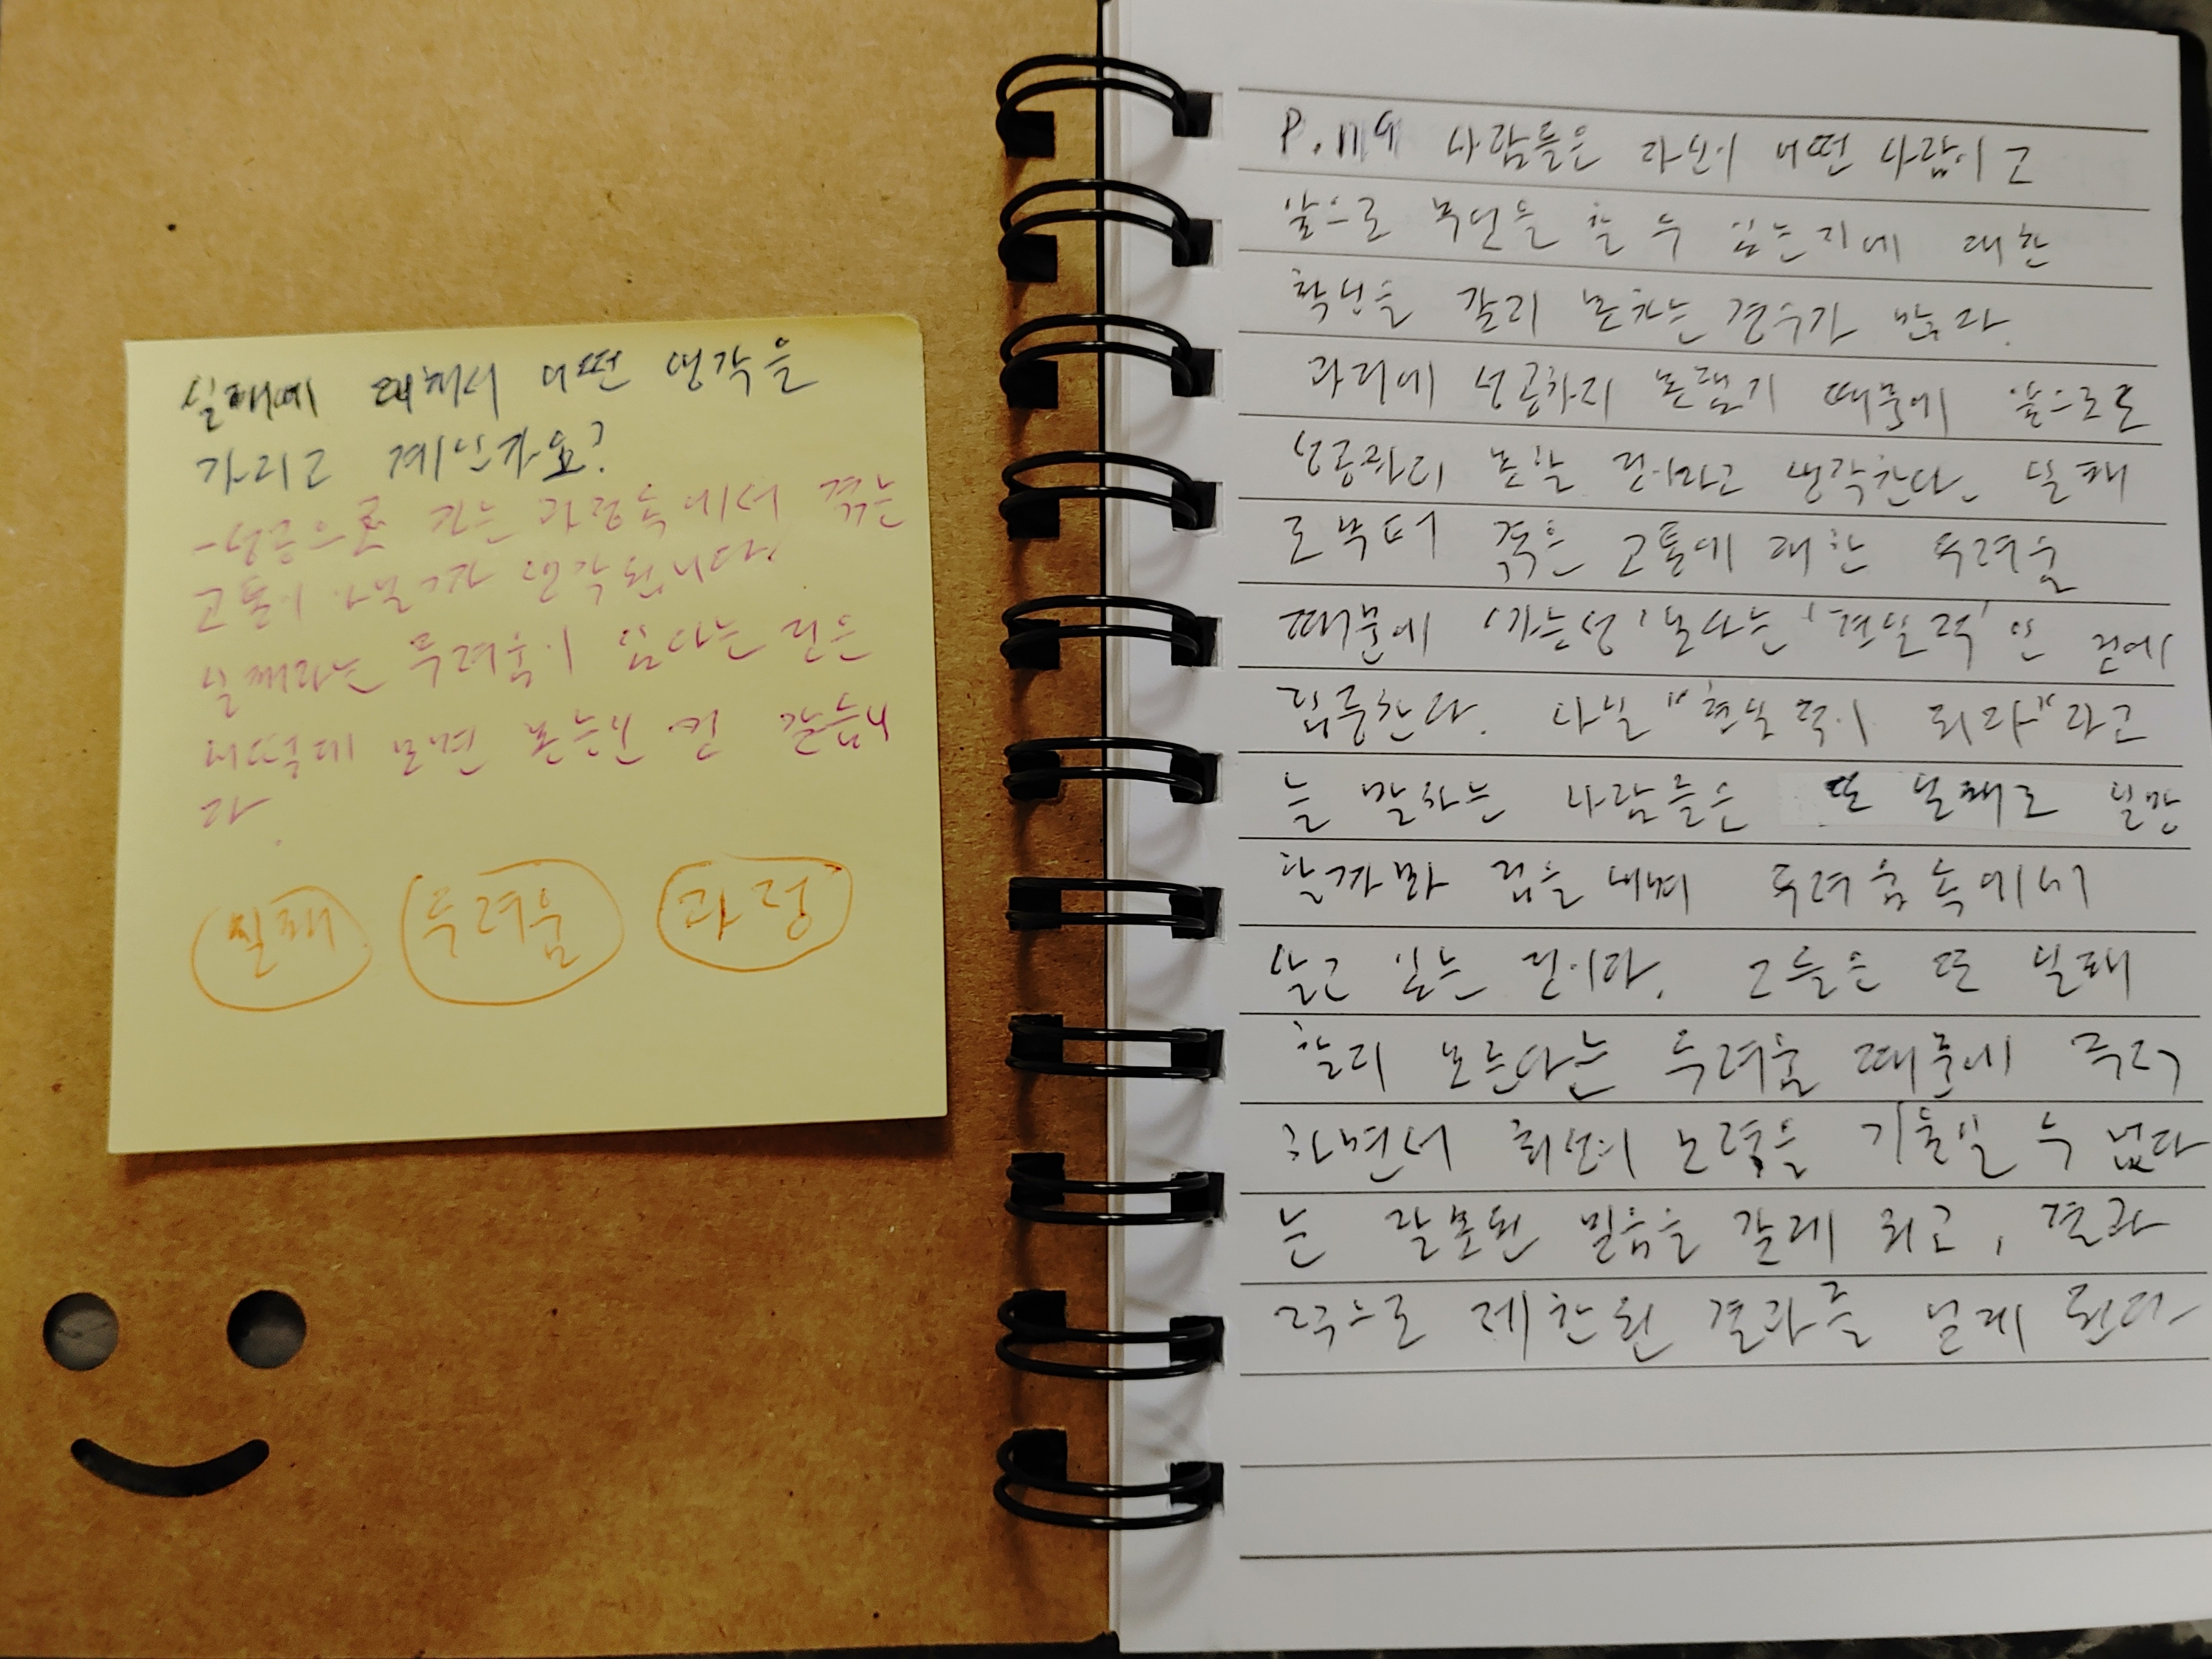 실패에 대해서 어떤 생각을
가지고 계신가요?
- 성공으로 가는 과정속에서 겪는
고통이 아닐까 생각됩니다.
실패라는 두려움이 있다는 것은
어떻게 보면 본능인 것 같습니
다.
실패 두려움 과정
P.119 사람들은 자신이 어떤 사람이고
앞으로 무엇을 할 수 있는지에 대한
확신을 갖지 못하는 경우가 많다.
과거에 성공하지 못했기 때문에 앞으로도
성공하지 못할 것이라고 생각한다. 실패
로부터 겪은 고통에 대한 두려움
때문에 '가능성'보다는 '현실적'인 것에
집중한다. 매일 "현실적이 되라"라고
늘 말하는 사람들은 또 실패로 실망
할까봐 겁을 내며 두려움속에서
살고 있는 것이다. 그들은 또 실패
할지 모른다는 두려움 때문에 주저
하면서 최선의 노력을 기울일 수 없다
는 잘못된 믿음을 갖게 되고, 결과
적으로 제한된 결과를 낳게 된다